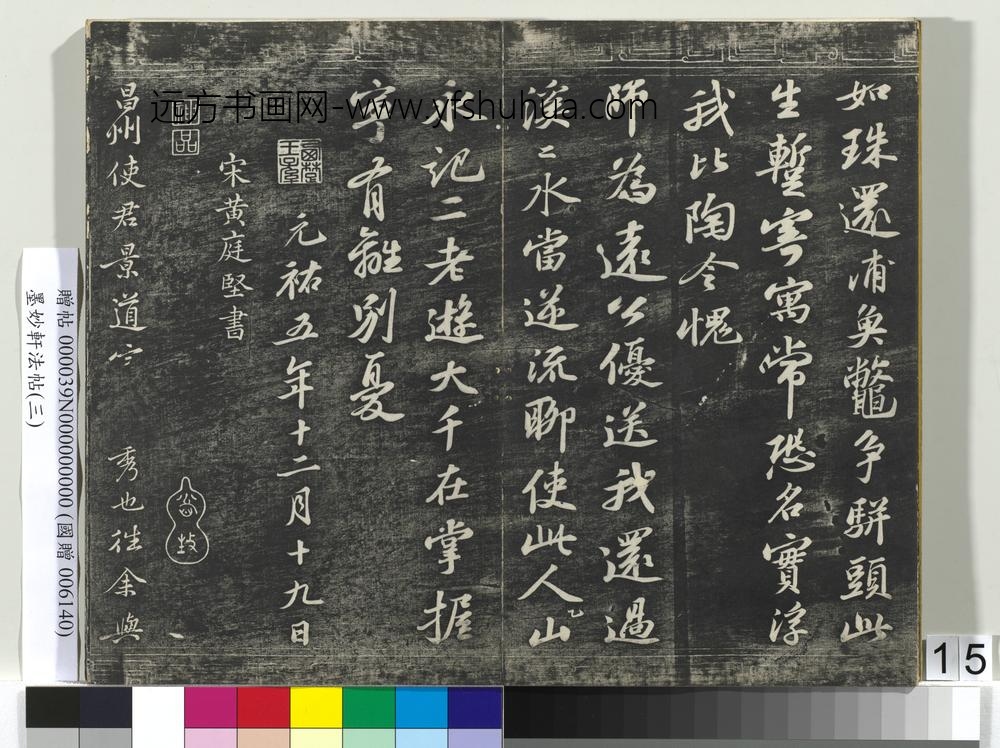 如珠還浦魚鼈爭駢頭此
生暫寄寓常恐名實浮
我比陶令愧
師為遠公優送我還過
溪〻水當逆流聊使此人山
永記二老遊大千在掌握
寧有離別憂
元祐五年十二月十九日
宋黃庭堅書
昌州使君景道宗秀也往余與
远方书画网-www.yfshuhua.com
贈帖 000039N000000000 (國贈 006140)
墨妙軒法帖(三)
15